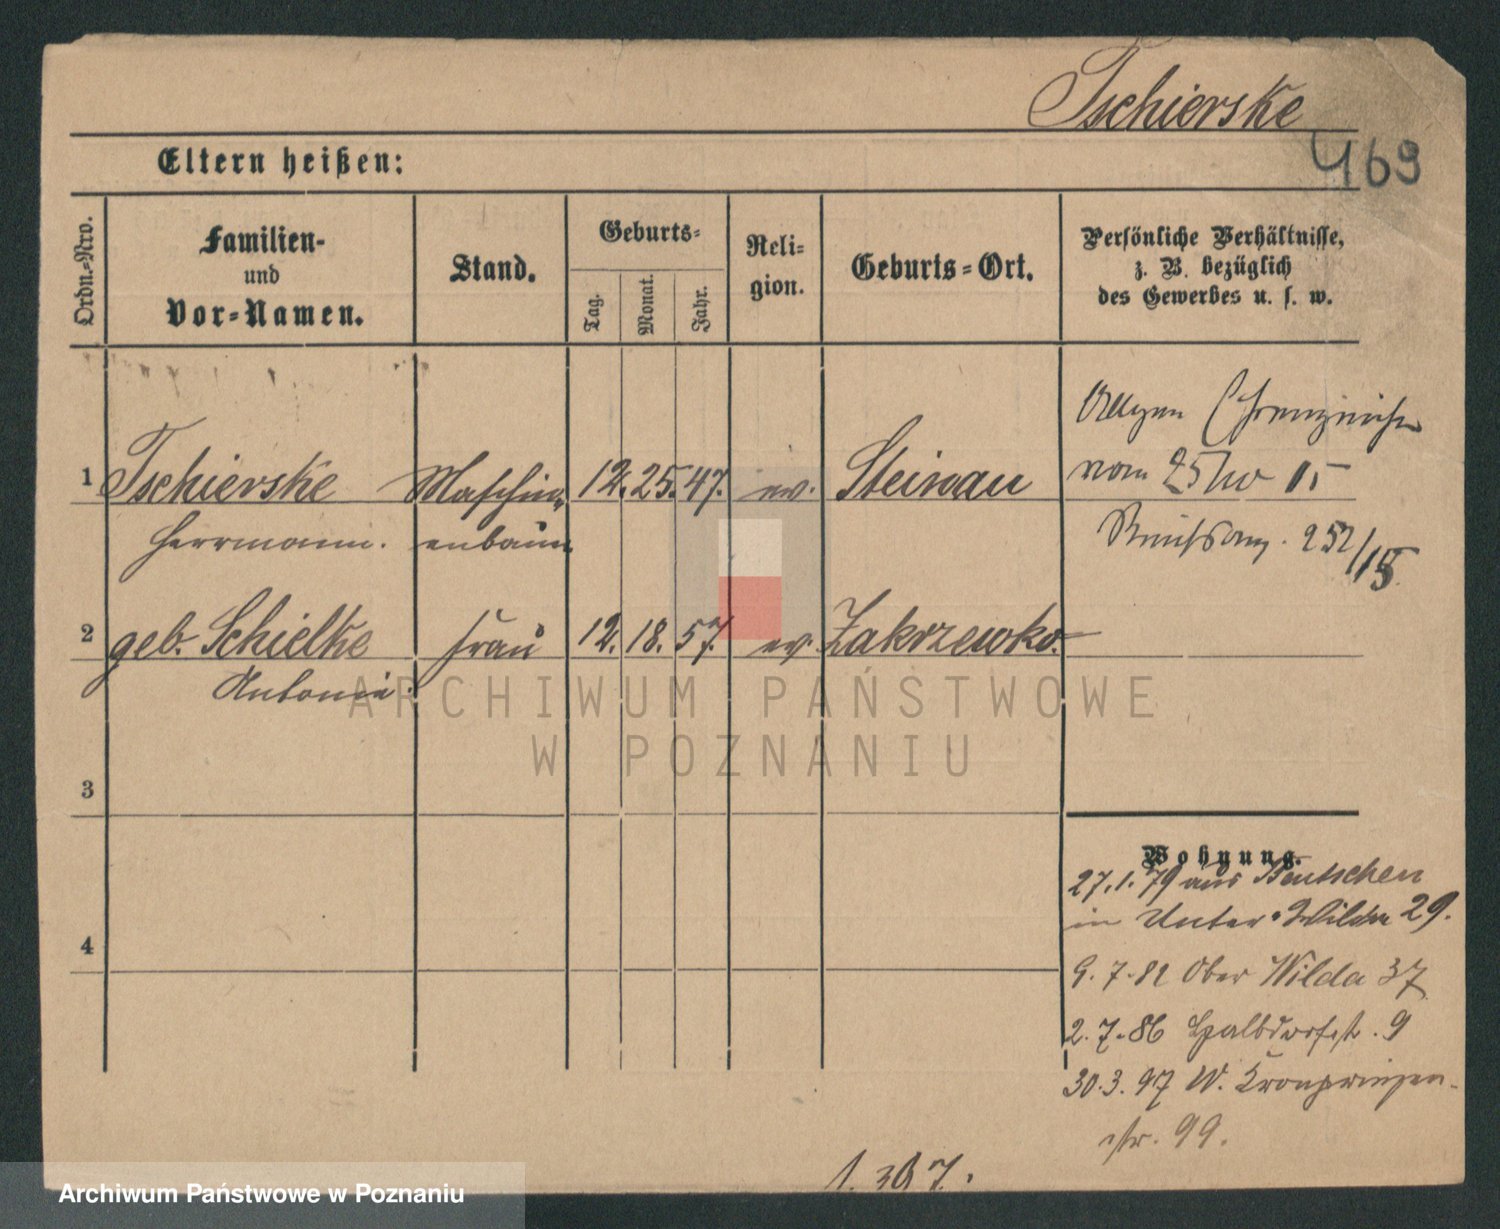 Tschierske
469
Eltern heißen:
Ordn.-Nro.
Familien-
und
Vor-Namen.
Stand.
Geburts-
Tag.
Monat.
Jahr.
Reli-
gion.
Geburts-Ort.
Persönliche Verhältnisse,
z. B. bezüglich
des Gewerbes u. s. w.
vom 25
1 Tschierske Maschin- 12. 25. 47. ev. Steinau
Herrmann. enbauer
252/15
2 geb. Schielke Frau 12. 18. 57. ev. Zakrzewko.
Antonie.
ARCHIWUM PAŃSTWOWE
W POZNANIU
3
Wohnung.
27.1.79 aus Bentschen
in Unter-Wilda 29.
4
9.7.82 Ober Wilda 37
2.7.86 Halbdorfst. 9
30.3.97 W. Kronprinzen-
str. 99.
Archiwum Państwowe w Poznaniu